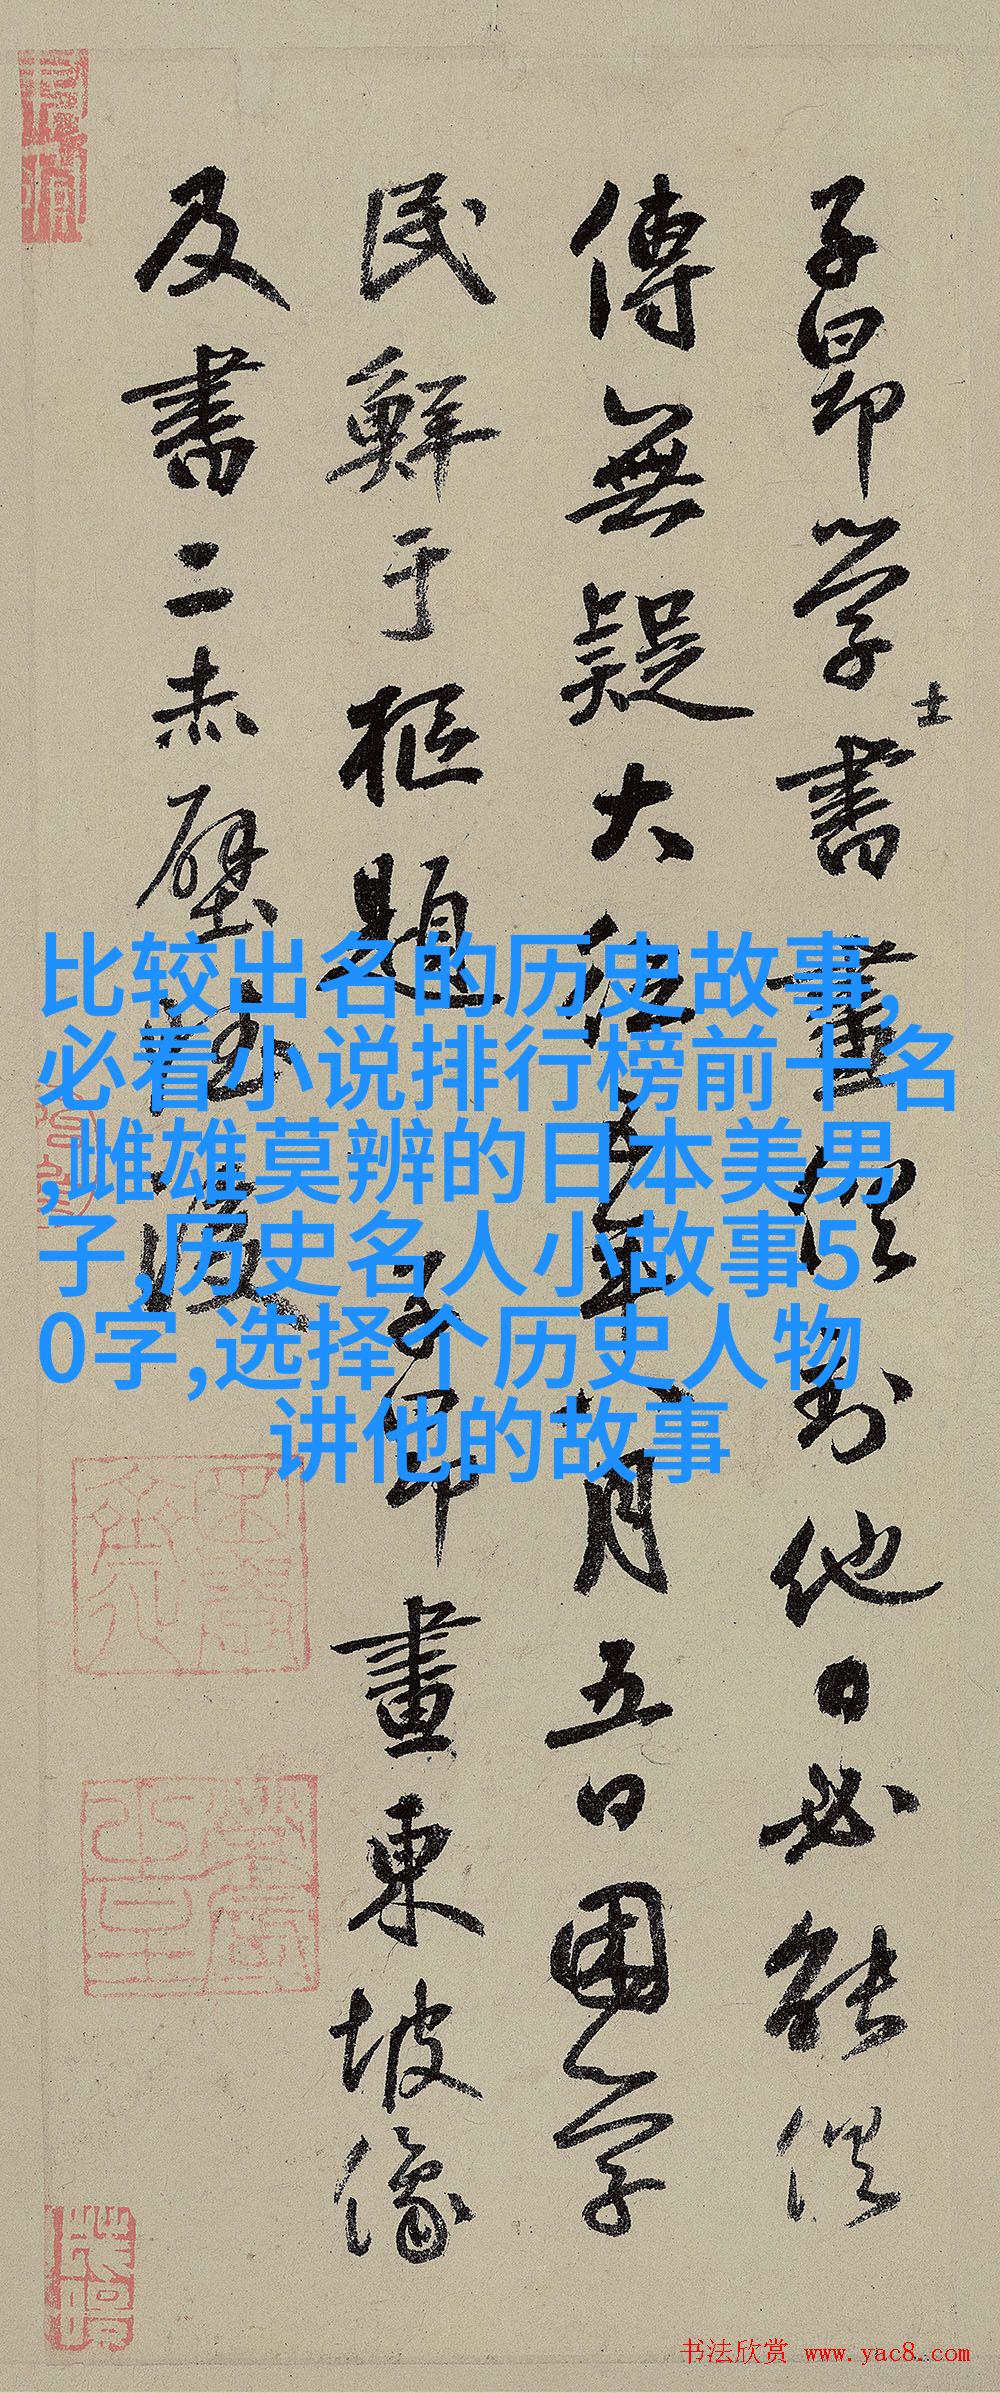 子昂学士書畫俱到他日必能俱
傳無疑大德五年八月五日困學
民鮮于樞題子昂畫東坡像
及書二赤壁
比较出名的历史故事,
必看小说排行榜前十名
,雌雄莫辨的日本美男
子,历史名人小故事5
0字,选择个历史人物
讲他的故事
书法欣赏 www.yac8.com